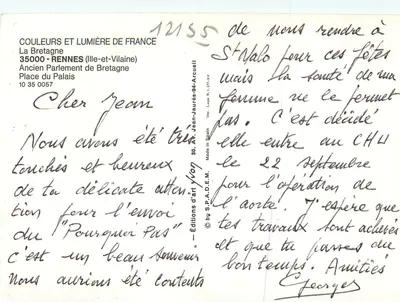 COULEURS ET LUMIÈRE DE FRANCE
La Bretagne
35000 - RENNES (Ille-et-Vilaine)
Ancien Parlement de Bretagne
Place du Palais
10 35 0057
12135
Cher Jean
Nous avons été très
touchés et heureux
de ta délicate atten
tion pour l'envoi
du "Pourquoi Pas"
c'est un beau souvenir
Nous aurions été contents
Editions d'art Yvon
30, Av. Jean-Jaurès-94-Arcueil
© by S.P.A.D.E.M.
de nous rendre à
St Malo pour ces fêtes
mais la santé de ma
femme ne le permet
pas. C'est décidé
elle entre au CHU
le 22 septembre
pour l'opération de
l'aorte. J'espère que
tes travaux sont achevés
et que tu passes du
bon temps. Amitiés
Georges